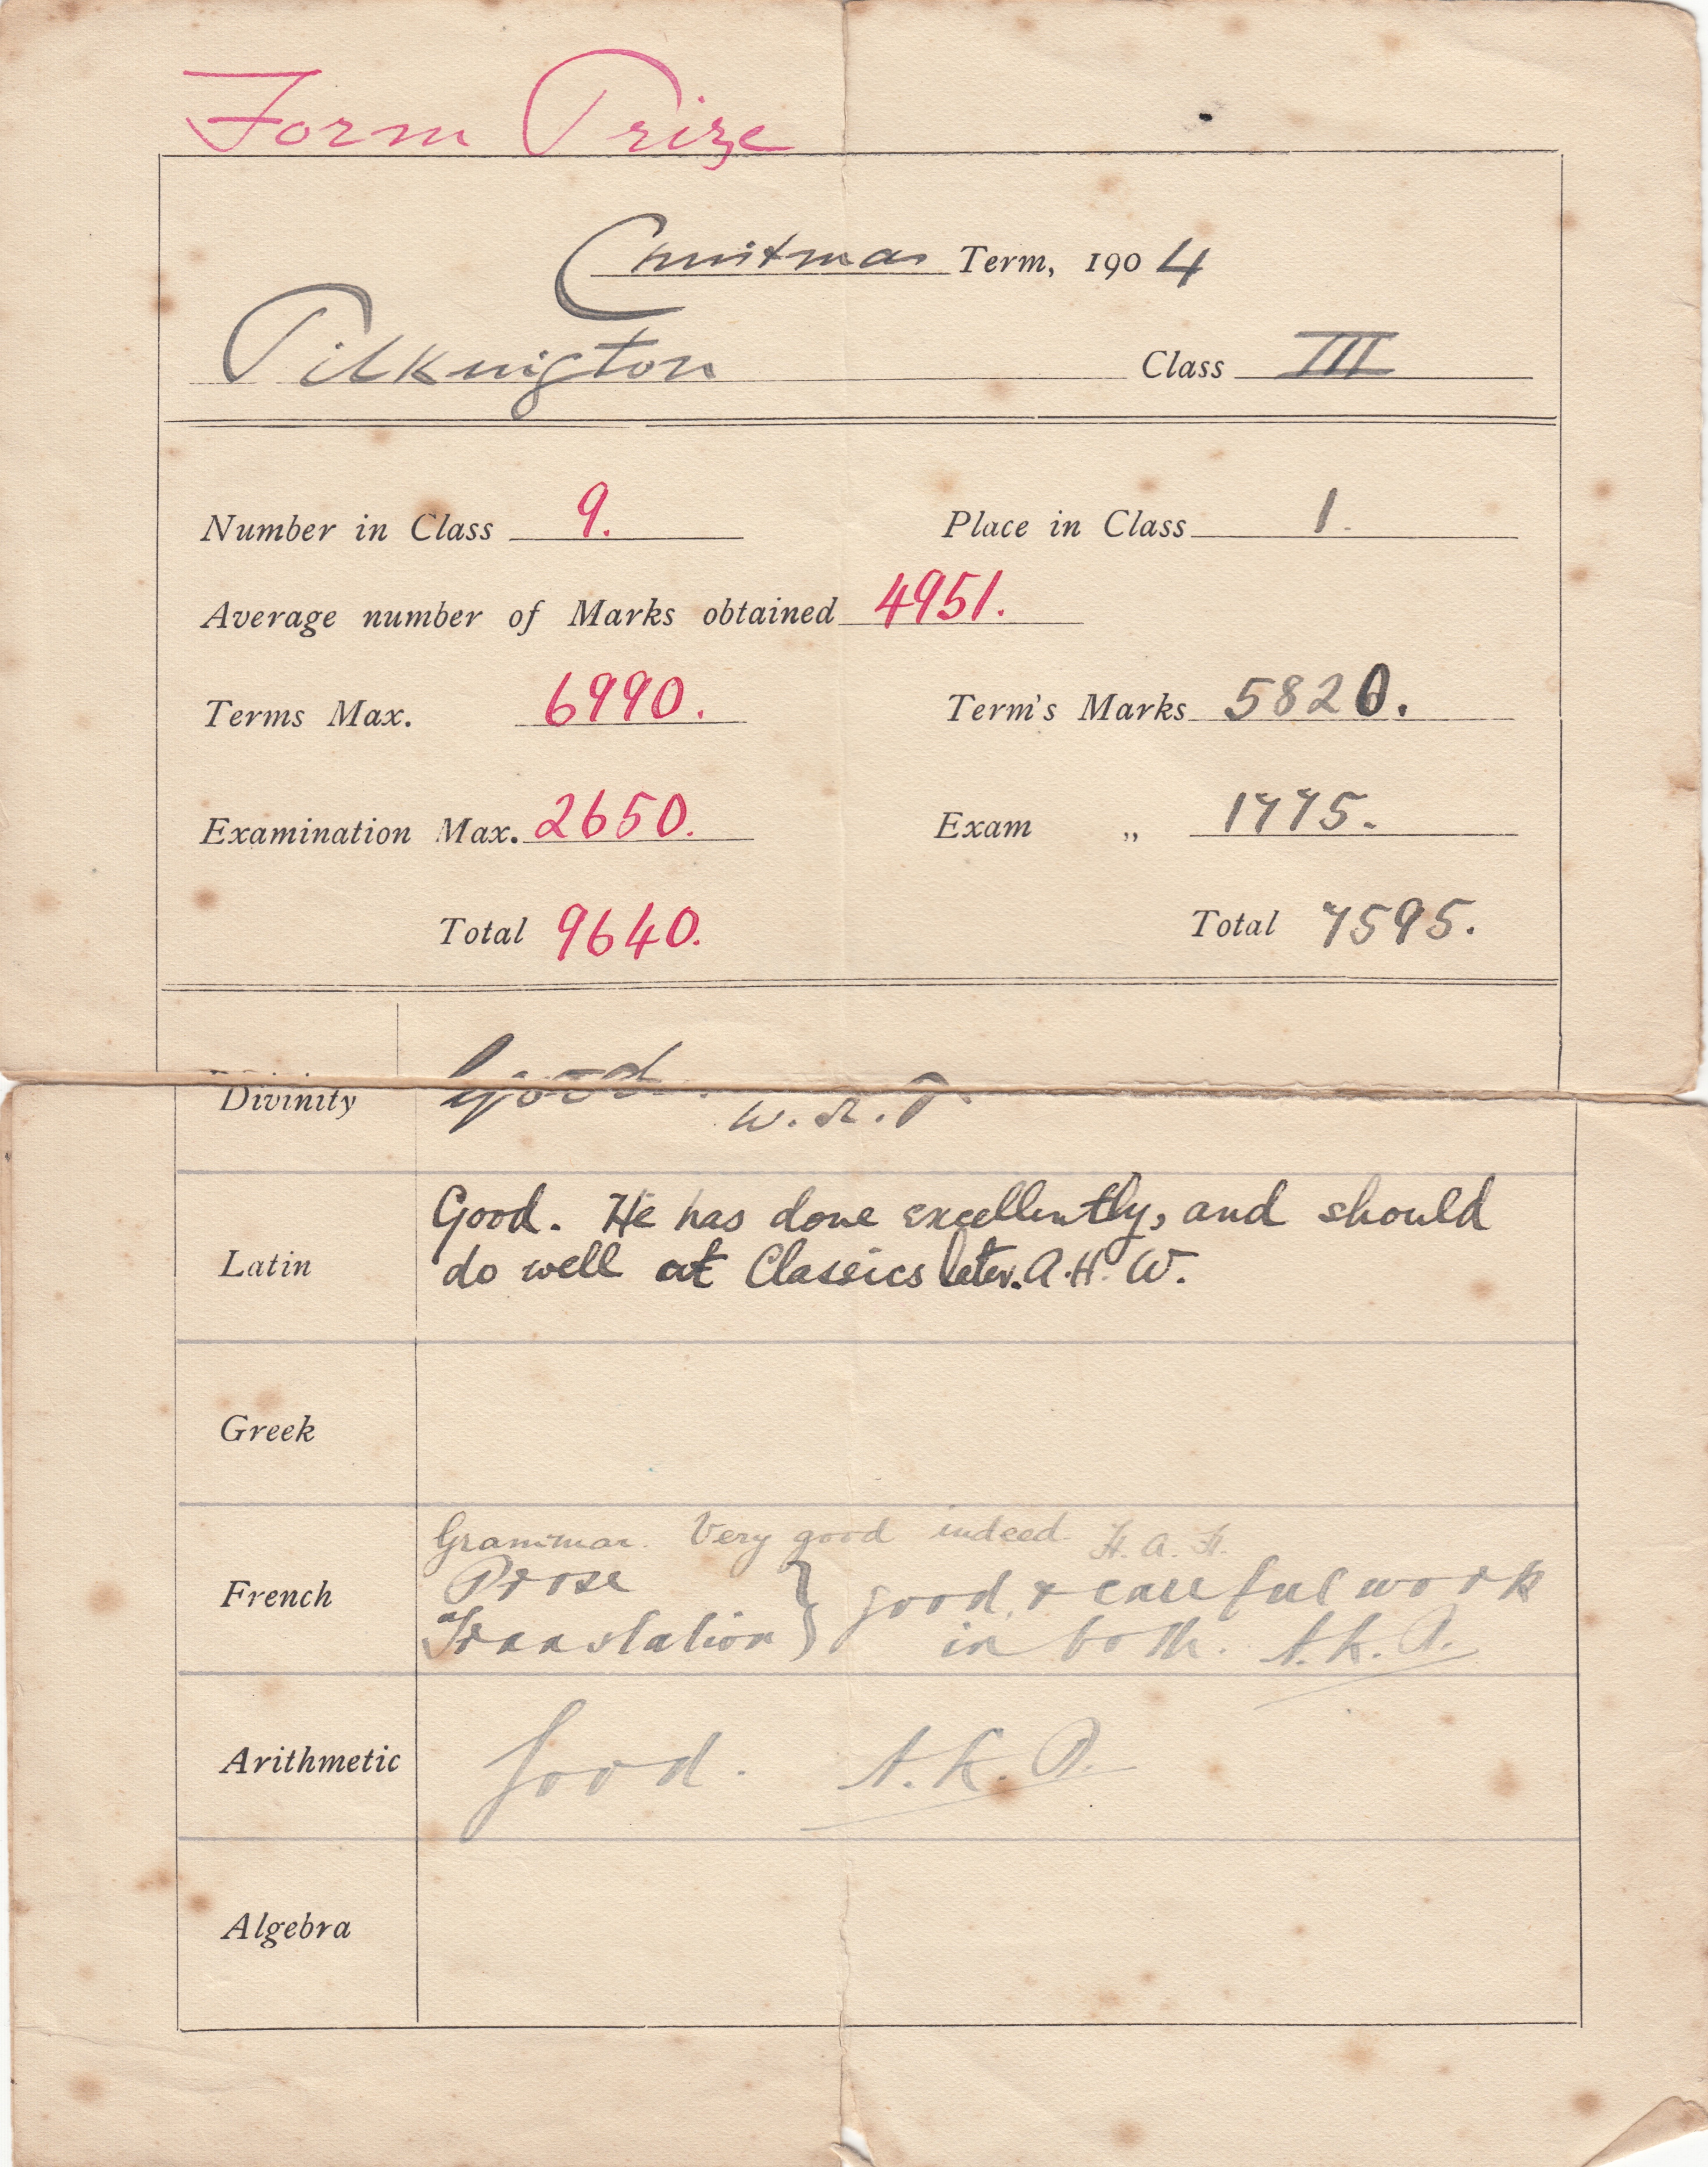 Form Prize
Christmas Term, 1904
Pilkington Class III
Number in Class 9. Place in Class 1.
Average number of Marks obtained 4951.
Terms Max. 6990. Term's Marks 5820.
Examination Max. 2650. Exam „ 1775.
Total 9640. Total 7595.
Divinity Good. W. R. P.
Good. He has done excellently, and should
Latin do well at Classics later. A. H. W.
Greek
Grammar. Very good indeed H. A. H.
French Prose } good & careful work
Translation } in both. A. K. P.
Arithmetic Good. A. K. P.
Algebra